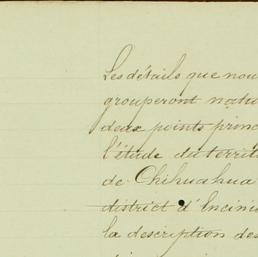 Les détails que nou
grouperont natu
deux points princ
l'étude du territ
de Chihuahua
district d'Encini
la description des